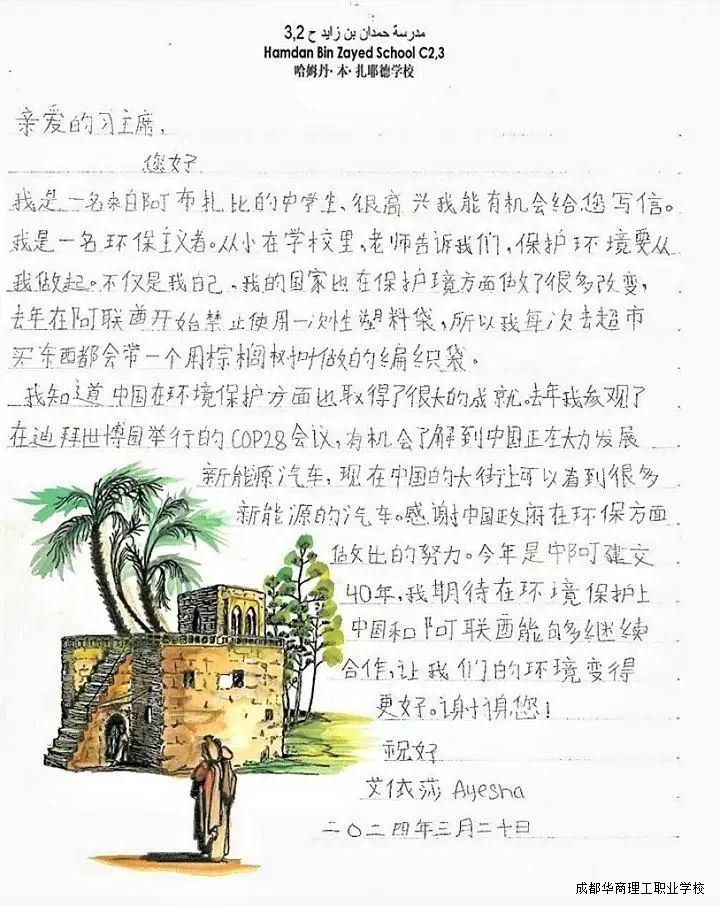 مدرسة حمدان بن زايد ح 3,2
Hamdan Bin Zayed School C2,3
哈姆丹·本·扎耶德学校
亲爱的习主席,
您好
我是一名来自阿布扎比的中学生、很高兴我能有机会给您写信。
我是一名环保主义者。从小在学校里,老师告诉我们,保护环境要从
我做起。不仅是我自己,我的国家也在保护境方面做了很多改变,
去年在阿联酋开始禁止使用一次性塑料袋,所以我每次去超市
买东西都会带一个用棕榈树叶做的编织袋。
我知道中国在环境保护方面也取得了很大的成就。去年我参观了
在迪拜世博园举行的COP28会议,有机会了解到中国正在大力发展
新能源汽车,现在中国的大街上可以看到很多
新能源的汽车。感谢中国政府在环保方面
做出的努力。今年是中阿建交
40年,我期待在环境保护上
中国和阿联酋能够多继续
合作,让我们的环境变得
更好。谢谢您!
祝好
艾依莎 Ayesha
二〇二四年三月二十日
成都华商理工职业学校